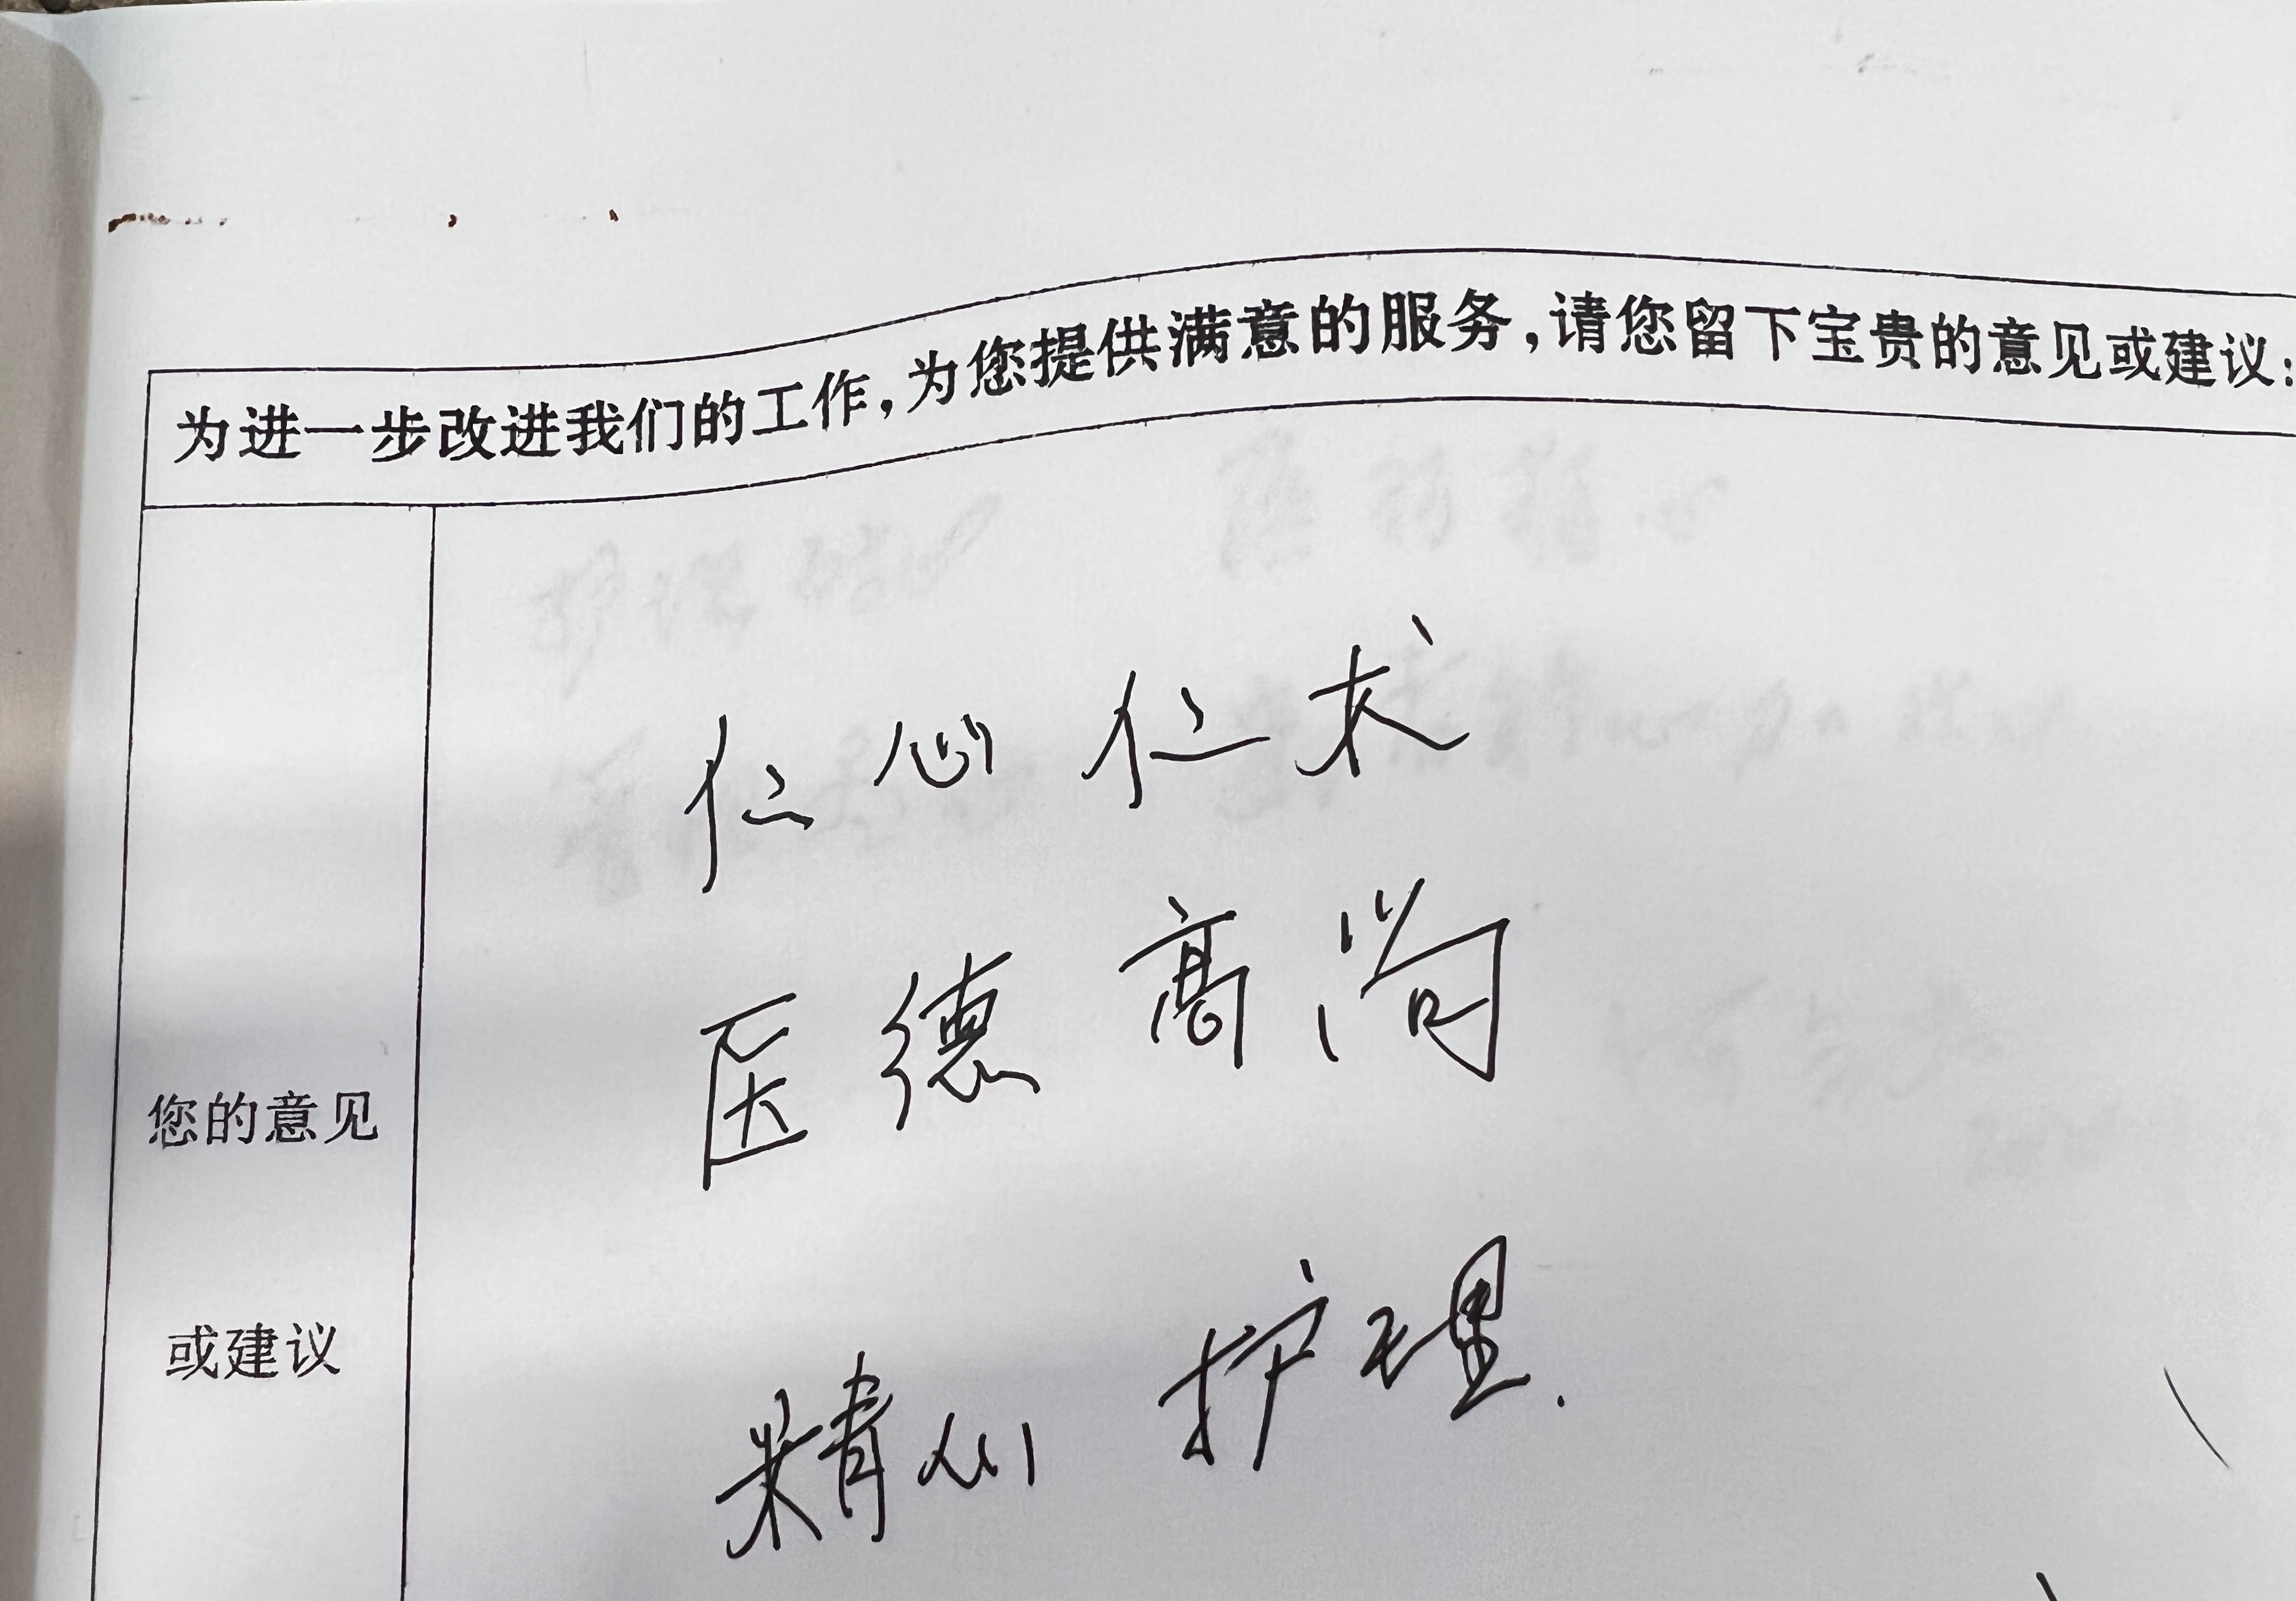 为进一步改进我们的工作,为您提供满意的服务,请您留下宝贵的意见或建议:
仁心仁术
医德高尚
您的意见
或建议
精心护理.